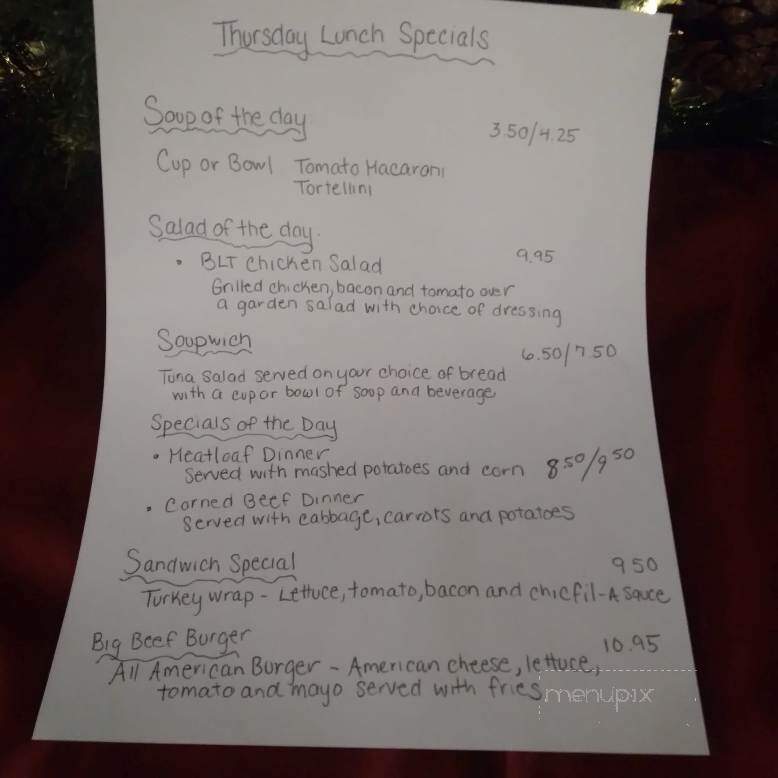 Thursday Lunch Specials
Soup of the day
3.50/4.25
Cup or Bowl Tomato Macaroni
Tortellini
Salad of the day.
• BLT Chicken Salad 9.95
Grilled chicken, bacon and tomato over
a garden salad with choice of dressing
Soupwich
6.50/7.50
Tuna salad served on your choice of bread
with a cup or bowl of soup and beverage
Specials of the Day
• Meatloaf Dinner
Served with mashed potatoes and corn 8.50/9.50
• Corned Beef Dinner
Served with cabbage, carrots and potatoes
Sandwich Special 9 50
Turkey wrap - Lettuce, tomato, bacon and chicfil-A sauce
Big Beef Burger 10.95
All American Burger - American cheese, lettuce,
tomato and mayo served with fries
menupix